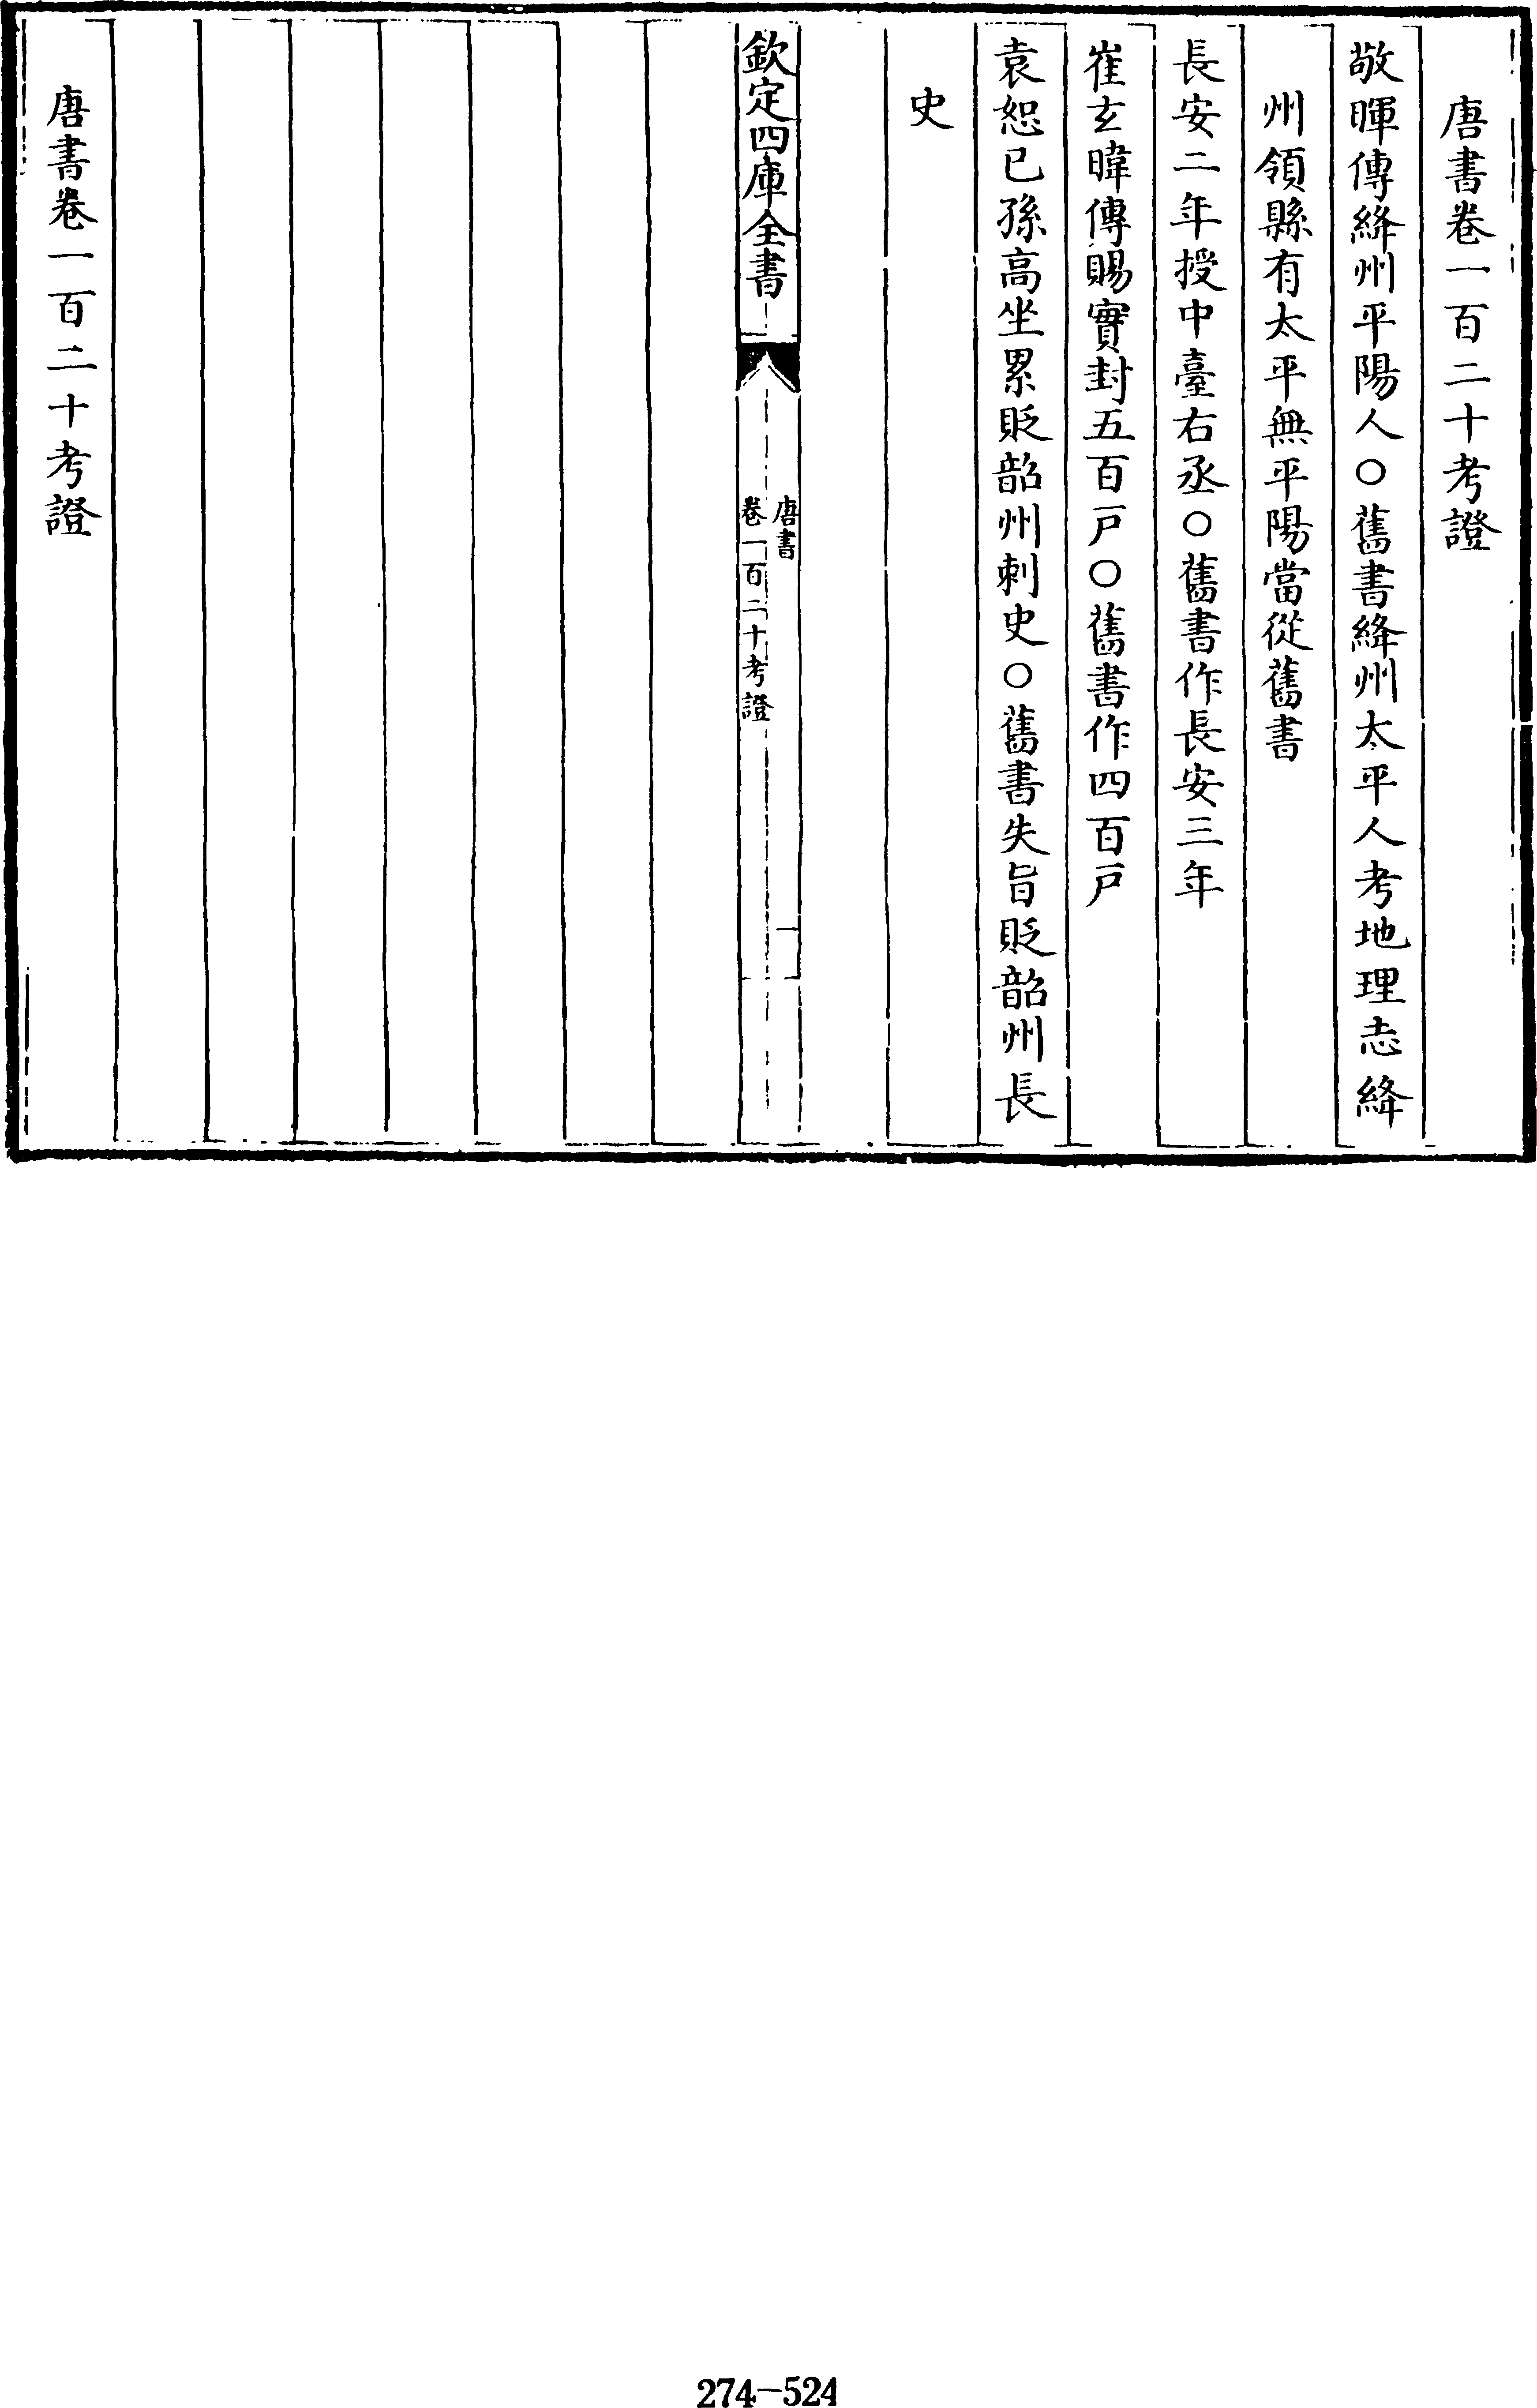 唐書卷一百二十考證
敬暉傳絳州平陽人○舊書絳州太平人考地理志絳
州領縣有太平無平陽當從舊書
長安二年授中臺右丞○舊書作長安三年
崔玄暐傳賜實封五百戸○舊書作四百戸
袁恕已孫高坐累貶韶州刺史○舊書失旨貶韶州長
史
欽定四庫全書
唐書
卷一百二十考證
一
唐書卷一百二十考證
274-524